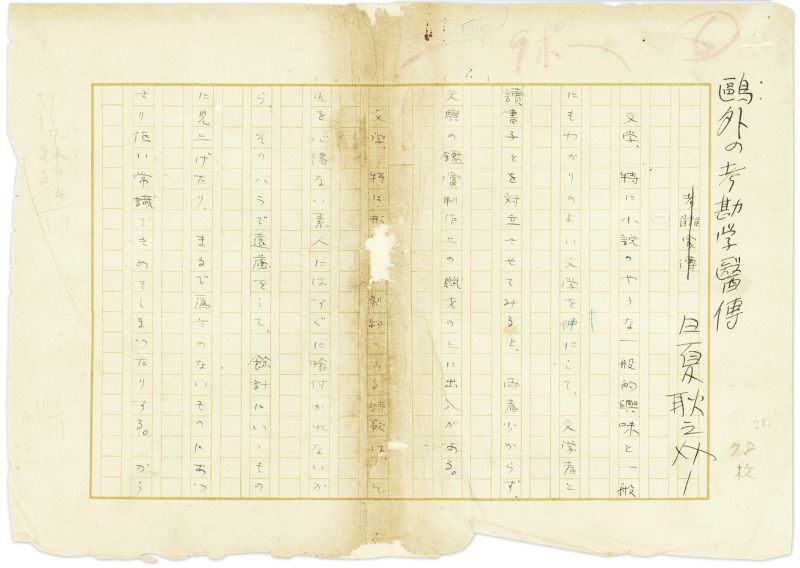 鷗外の考勘学醫傳
日夏耿之介
(一)
文学、特に小説のやうな一般的興味と一般
にもわかりのよい文学を仲にして、文学者と
讀書子とを対立させてみると、両者少からず、
文興の鑑賞制作上の才の上に出入がある。
文学、特に形 制約のある詩歌は、そ
れを心得ない素人にはすぐに喰付かれないか
ら、そのハウで遠慮をして、餘計にいゝもの
に見上げたり、まるで為方のないものにあつ
さり低い常識できめてしまつたりする。から
28枚